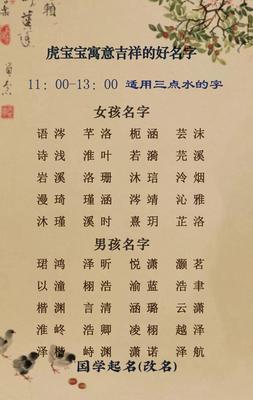 虎宝宝寓意吉祥的好名字
11：00-13：00 适用三点水的字
女孩名字
语涔 芊洛 栀涵 芸沫
诗浅 淮叶 若漪 芫溪
岩溪 洛珊 沐琂 泠烟
漫琦 瑾涵 涔靖 沁雅
沐瑾 溪时 熹玥 芷洛
男孩名字
珺鸿 泽昕 悦潇 灏茗
以潼 栩浩 渝蓝 浩聿
楷渊 言清 涵璐 云潇
淮峂 浩卿 凌栩 越泽
泽楷 峙渊 潇诺 泽航
国学起名(改名)